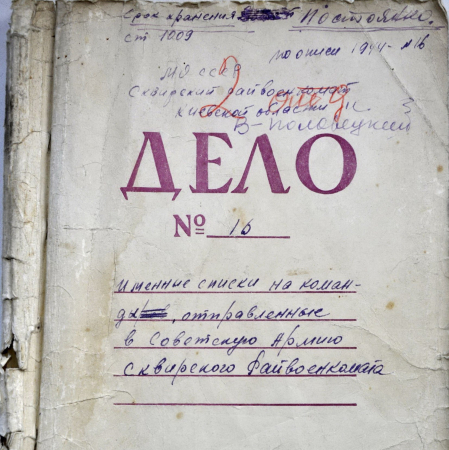 Срок хранения Постоянн.
ст 1009
по описи 1944 - №16
МО СССР
Сквирский райвоенкомат
Киевской области
2
В-Половецкий
ДЕЛО
№ 16
Именные списки на коман-
ды, отправленные
в Советскую Армию
Сквирского Райвоенкомата